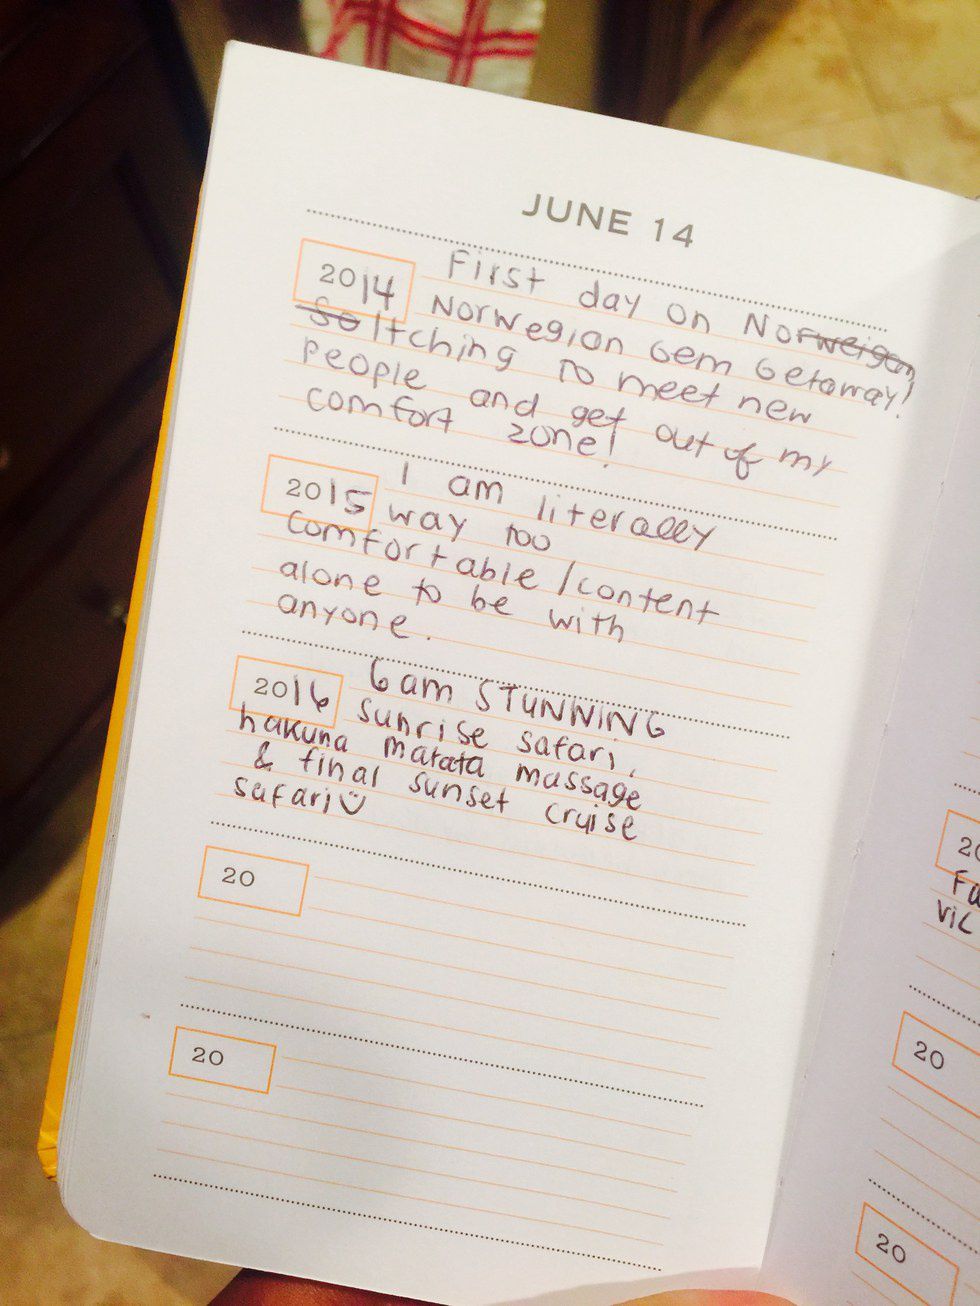 JUNE 14
2014 First day on Norweigan
Norwegian Gem Getaway!
So Itching to meet new
people and get out of my
comfort zone!
2015 I am literally
way too
comfortable/content
alone to be with
anyone.
2016 6am STUNNING
sunrise safari,
hakuna matata massage
& final sunset cruise
safari
20
20
20
Fa
Vic
20
20